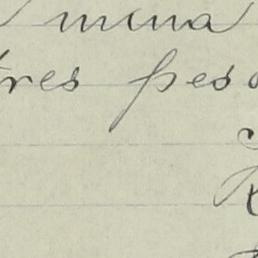 mina
tres pes